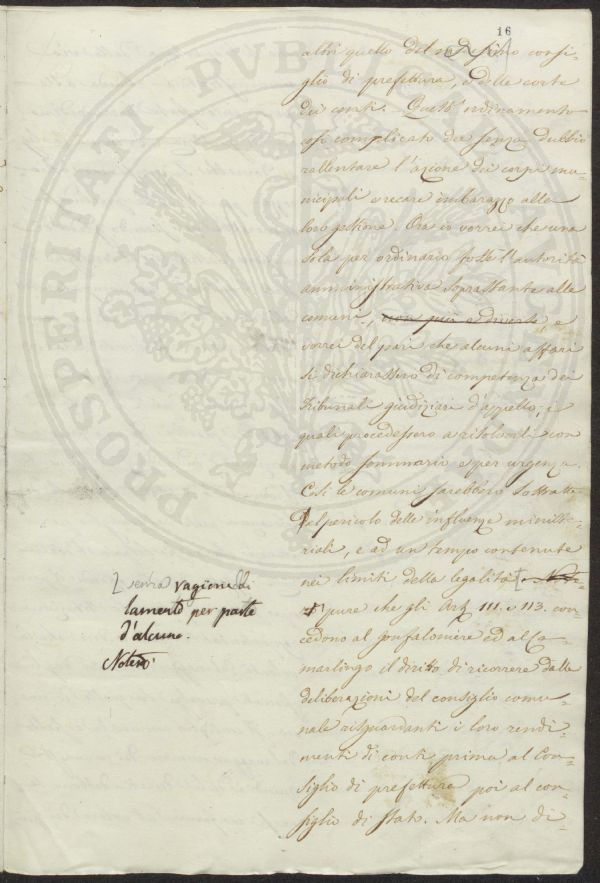 16
altri quello del medesimo consi-
glio di prefettura, e della corte
dei conti. Quest'ordinamento
così complicato dee senza dubbio
rallentare l'azione dei corpi mu-
nicipali e recare imbarazzo alla
loro gestione. Ora io vorrei che una
sola per ordinario fosse l'autorità
amministrativa soprastante alle
comuni, non più e diverse e
vorrei del pari che alcuni affari
si dichiarassero di competenza dei
Tribunali giudiziari d'appello, i
quali procedessero a risolverli con
metodo sommario e per urgenza.
Così le comuni sarebbero sottratte
al pericolo delle influenze ministe-
riali, e ad un tempo contenute
nei limiti della legalità
senza ragione di
lamento per parte
d'alcuno.
Noterò
pure che gli Art. 111. e 113. con-
cedono al gonfaloniere ed al Ca-
marlingo il diritto di ricorrere dalle
deliberazioni del consiglio comu-
nale risguardanti i loro rendi-
menti di conti prima al Con-
siglio di prefettura poi al con-
siglio di stato. Ma non di-
PROSPERITATI PUBLICAE